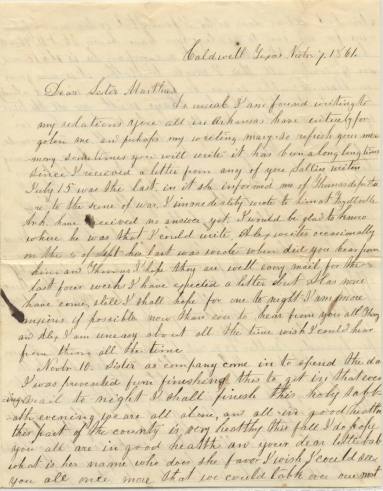 Caldwell Texas Novbr 7. 1861.
Dear Sister Martha
As usual I am found writing to
my relations you all in Arkansas have entirely for
goten me an perhaps my writing may so refresh your me
mory sometimes you will write it has been a long long time
since I received a letter from any of you Sallies writen
July 15 was the last, in it she informed me of Thomas departu
re to the seane of war. I immediately wrote to him at Fayetteville
Ark. have received no answer yet. I would be glad to know
where he was that I could write. Aby writes occasionally
on the of Sept his last was wrote when did you hear from
him an Thomas I hope they are well every mail for the
last four week I have expected a letter but has none
have come, still I shall hope for one to night I am more
anxious if possible now than ever to hear from you all Thom
and Aby, I am uneasy about all the time wish I could hear
from them all the time
Novbr 10. Sister as company come in to spend the da
I was prevented from finishing this to get in that even
ings mail to night I shall finish this holy Sabb-
ath evening we are all alone, and all in good health
this part of the county is very healthy this fall I do hope
you all are in good health an your dear little bab
what is her name who does she favor I wish I could see
you all once more that we could talk over our most